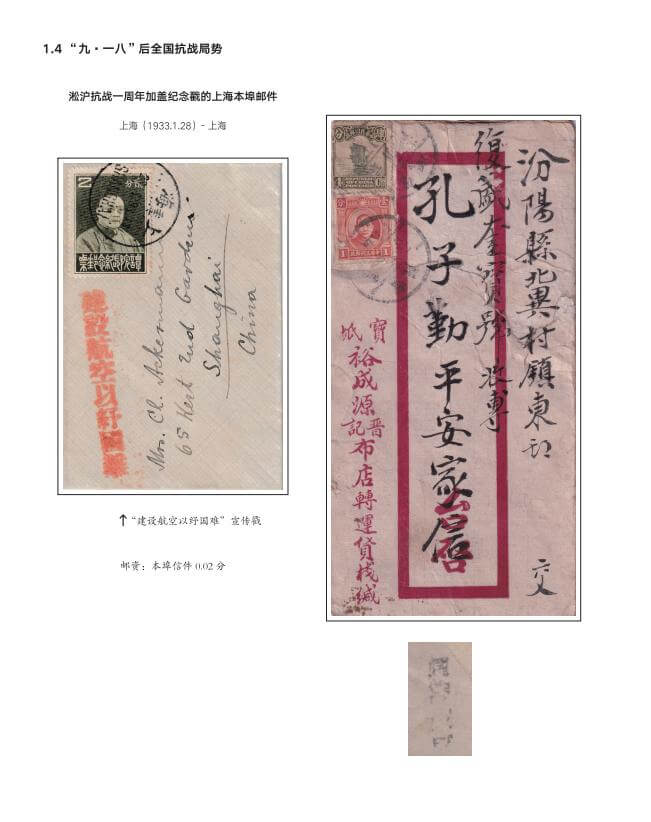 1.4 “九·一八”后全国抗战局势
淞沪抗战一周年加盖纪念戳的上海本埠邮件
上海（1933.1.28）- 上海
2
建設航空以紓國難
Mrs. Ch. Ackermann
65 West End Gardens
Shanghai
China
↑“建设航空以纾国难”宣传戳
邮资：本埠信件 0.02 分
汾陽縣北異村鎮東
復盛奎寶號
孔子勤平安家信
寶
裕成源晋記布店轉運貨棧緘
1
1